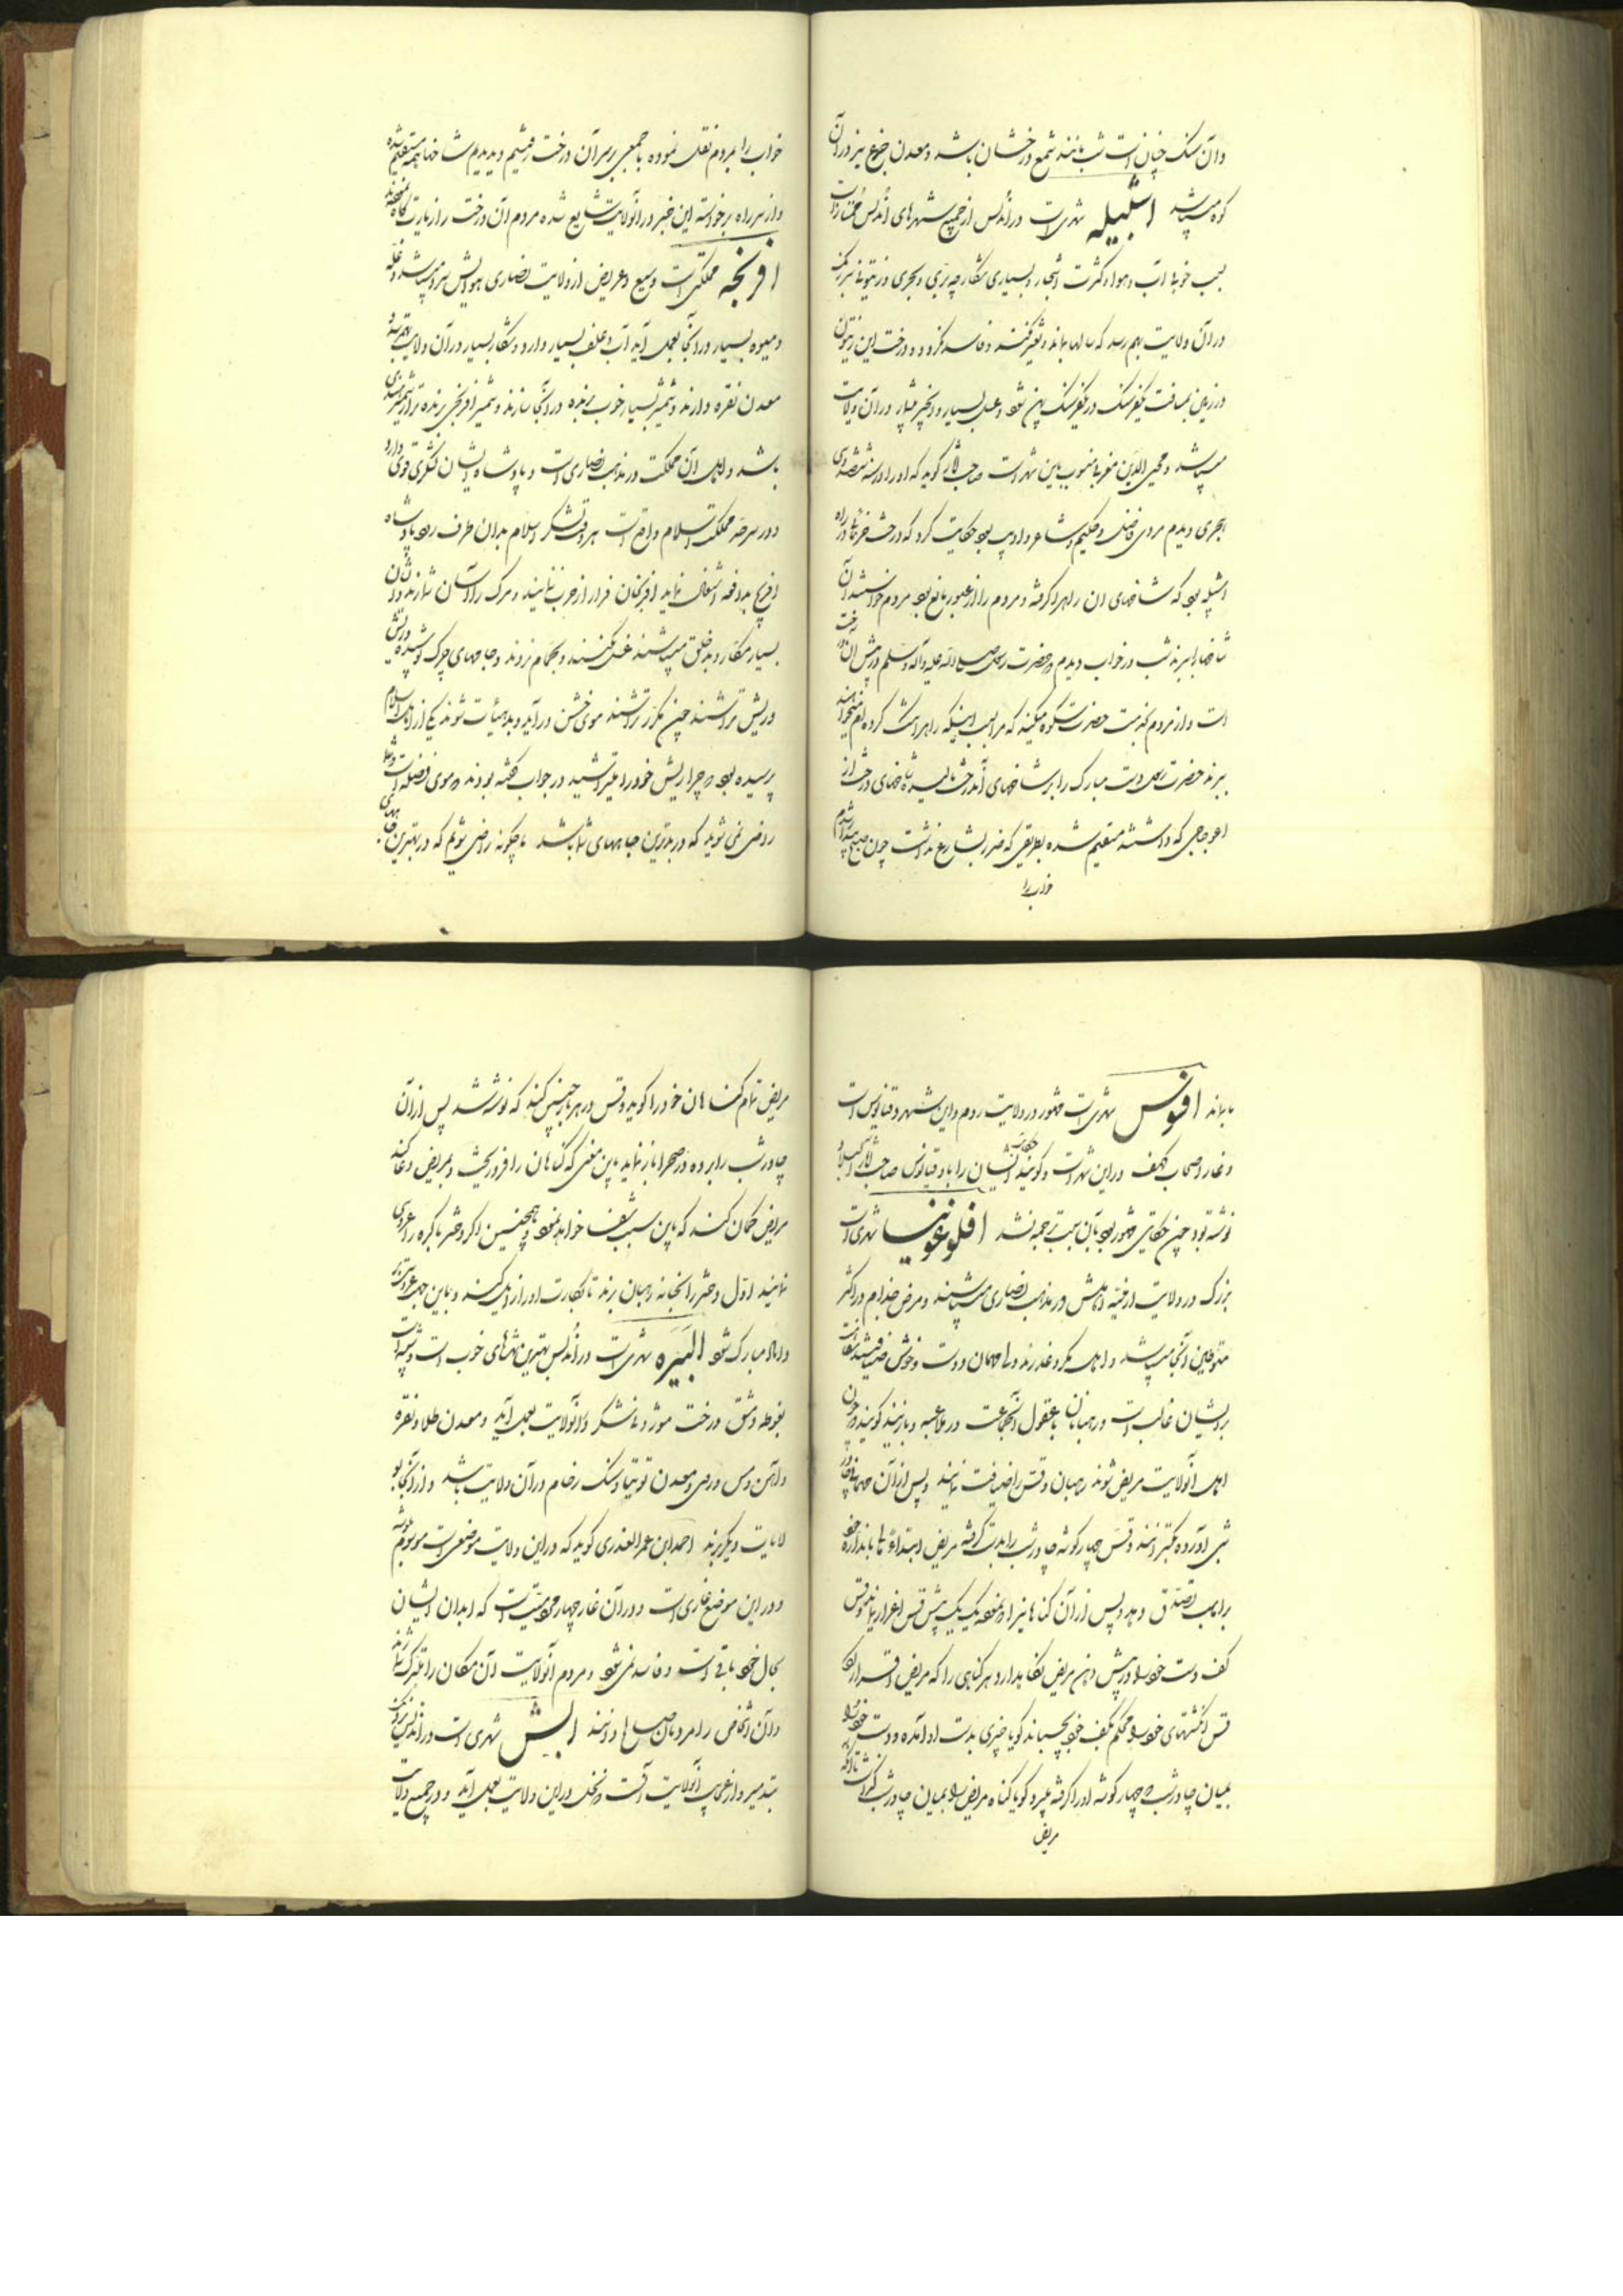 وآن سنک چنان است شب مانند شمع درخشان باشد ومعدن جزع نیز در آن
کوه میباشد اشبیلیه شهری است در اندلس از جمیع شهرهای اندلس ممتاز است
بسبب خوبی آب وهوا و کثرت اشجار وبسیاری شکار چه بری و بحری وزیتونی
در آن ولایت بهم رسد که سالها بماند و تغیر نکند وفاسد نکردد ودرخت این زیتون
در زمین بمسافت یکفرسنک در یکفرسنک پهن شود وعسل بسیار وانجیر بسیار در آن ولایت
میباشد ومحیی الدین مغربی منسوب باین شهر است صاحب آثار کوید که او را در سنه
هجری دیدم مردی فاضل وحکیم وشاعر وادیب بود حکایت کرد که درخت خرمائی در راه
اشبیلیه بود که شاخهای ان راه را کرفته ومردم را از عبور مانع بود مردم خواستند آن
شاخها را ببرند شب در خواب دیدم که حضرت رسول صلی الله علیه وآله وسلم در پیش آن درخت
است واز مردم شکوه میکند که مرا بسبب اینکه راه را تنک کرده ام میخواهند
ببرند حضرت رسول دست مبارک را بر شاخهای آندرخت مالیده شاخهای درخت از
اعوجاجی که داشته مستقیم شده بطریقی که ضرر بشارع نداشت چون صبح بیدار شدم
خواب را
خواب را بمردم نقل نموده با جمعی بر سر آن درخت رفتیم ودیدیم شاخها همه مستقیم شده
واز سر راه برخواسته این خبر در انولایت شایع شده مردم آن درخت را زیارتگاه
افرنجه مملکتی است وسیع وعریض از ولایت نصاری هوایش سرد میباشد وغله
ومیوه بسیار در آنجا بعمل آید آب وعلف بسیار دارد وشکار بسیار در آن ولایت
معدن نقره دارند وشمشیر بسیار خوب برنده در آنجا سازند وشمشیر افرنجی برنده تر از شمشیر هندی
باشد واهل آن مملکت در مذهب نصاری است وپادشاه ایشان لشکری قوی دارد
ودر سرحد مملکت اسلام واقع است هر وقت لشکر اسلام بدان طرف رود پادشاه
افرنج بمدافعه اشتغال نماید افرنجان فرار از حرب ننمایند ومرک را آسان شمارند
بسیار مکار وبد خلق میباشند غسل نکنند وبحمام نروند وجامهای چرک پوشیده
وریش تراشند چون مکرر تراشند موی خشن درآید وبد هیأت شوند یکی از اهل اسلام
پرسیده بود که چرا ریش خود را میتراشید در جواب کفته بودند که موی فضله است وشما
راضی نمی شوید که در بدترین جاهای شما باشد ما چکونه راضی شویم که در بهترین جا
بماند افسوس شهری است مشهور در ولایت روم واین شهر دقیانوس است
وغار اصحاب کهف در این شهر است وکویند حکایت ایشان را با دقیانوس صاحب آثار
نوشته بود چون حکایتی مشهور بود بآن سبب ترجمه نشد افلوغونیا شهری است
بزرک در ولایت ارمنیه اهلش در مذهب نصاری میباشند ومرض جذام در اکثر
متوطنین آنجا میباشد واهل مکر وغدرند ولی مهمان دوست وخوش ضیافت
بر ایشان غالب است ورهبانان با عقول آنجماعت در ملاعبه وبازیند کویند چون
اهل آنولایت مریض شوند رهبان وقس را ضیافت نمایند وپس از آن مهمانی چادر
شبی آورده بکسترانند وقس چهار کوشه چادر شب را بدست کرفته مریض ابتداء بماباندازه خود
براهب تصدق دهد وپس از آن کناهانیرا که نموده یک یک پیش قس اقرار نماید وقس
کف دست خود را در پیش دهن مریض نکاه بدارد وهر کناهی را که مریض اقرار کند
قس انکشتهای خود را محکم بکف خود بچسباند کویا چیزی بدست او آمده ودست خود را
بمیان چادر شب که چهار کوشه او را کرفته ببرد کویا کناه مریض را بمیان چادر شب کذاشت
مریض
مریض تمام کناهان خود را کوید وقس در هر بار چنین کند که نوشته شد پس از آن
چادر شب را برده در صحرا باز نماید باین معنی که کناهان را فرو ریخت وبمریض دعا کند
مریض کمان کند که باین سبب شفا خواهد نمود وهمچنین اکر دختر باکره را عروسی
نمایند اول دختر را بخانه رهبان برند تا بکارت او را زایل کند وباین جهت عروسی
داماد مبارک شود البیره شهری است در اندلس بهترین شهرهای خوب است وشبیه است
بغوطه دمشق درخت موز ونیشکر در آنولایت بعمل آید ومعدن طلا ونقره
وآهن ومس وروی ومعدن توتیا وسنک رخام در آن ولایت باشد واز آنجا
بولایات دیکر برند احمد ابن عمر العذری کوید که در این ولایت موضعی است موسوم
ودر این موضع غاری است ودر آن غار چهار میت است که ابدان ایشان
بحال خود باقی است وفاسد نمی شود ومردم آنولایت آن مکان را متبرک
وآن اشخاص را مردمان صالح دانند ابش شهری است در اندلس نزدیک
بتدمیر واز عجایب آنولایت آنست که نخل در این ولایت بعمل آید ودر جمیع ولایت